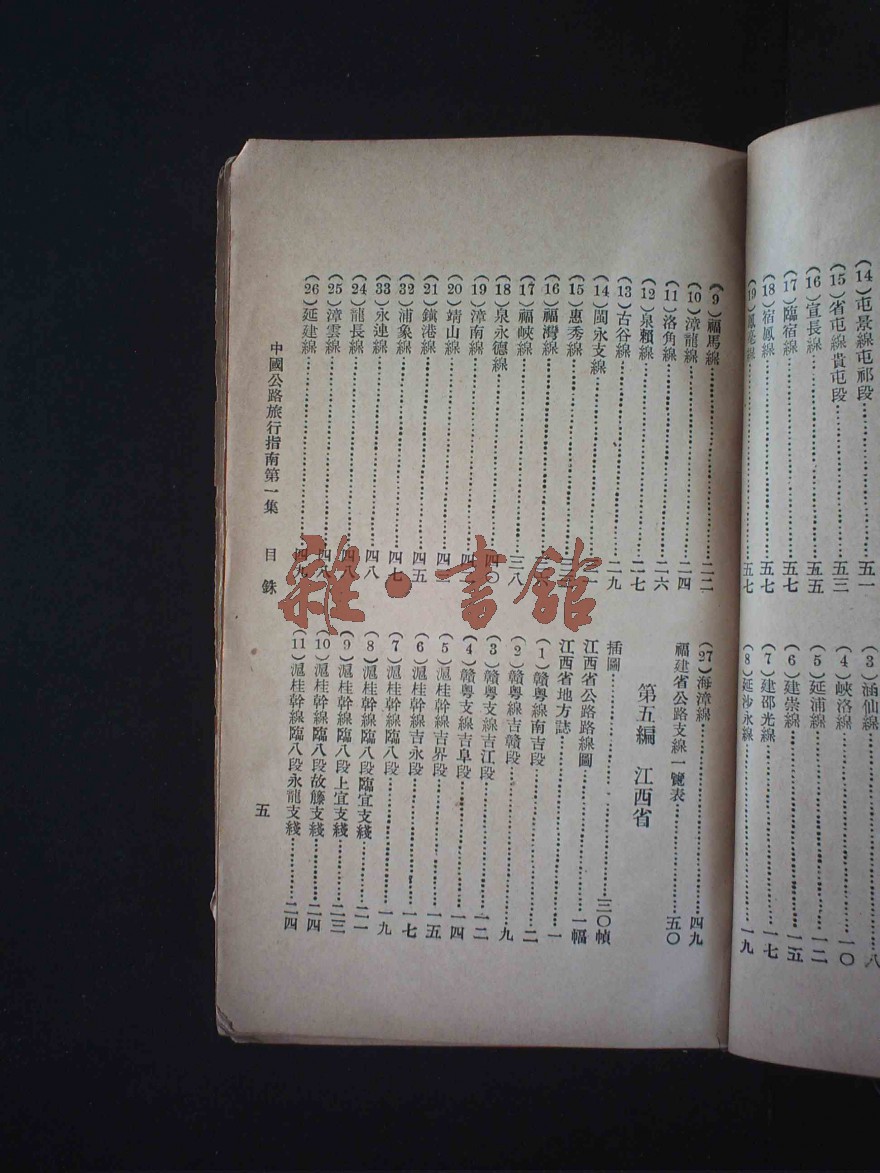 (14)屯景線屯祁段……五一
(15)省屯線貴屯段……五三
(16)宣長線……五五
(17)臨宿線……五七
(18)宿鳳線……五七
(19)鳳亳線……五七
(3)涵仙線……八
(4)峽洛線……一〇
(5)延浦線……一二
(6)建崇線……一五
(7)建邵光線……一七
(8)延沙永線……一九
(9)福馬線……二二
(10)漳龍線……二四
(11)洛角線……二六
(12)泉賴線……二七
(13)古谷線……二九
(14)閩永支線
(15)惠秀線
(16)福灣線
(17)福峽線……三八
(18)泉永德線……四〇
(19)漳南線
(20)靖山線
(21)鎮港線……四五
(32)浦象線……四七
(33)永連線……四八
(24)龍長線……四八
(25)漳雲線……四八
(26)延建線……四九
(27)海漳線……四九
福建省公路支線一覽表……五〇
第五編 江西省
插圖……三〇幀
江西省公路路線圖……一幅
江西省地方誌……一
(1)贛粵線南吉段……二
(2)贛粵線吉贛段……九
(3)贛粵支線吉江段……一二
(4)贛粵支線吉阜段……一四
(5)滬桂幹線吉界段……一五
(6)滬桂幹線吉永段……一七
(7)滬桂幹線臨八段……一九
(8)滬桂幹線臨八段臨宜支綫……二一
(9)滬桂幹線臨八段上宜支綫……二三
(10)滬桂幹線臨八段故籐支綫……二四
(11)滬桂幹線臨八段永龍支綫……二四
中國公路旅行指南第一集 目錄 五
雜·書館